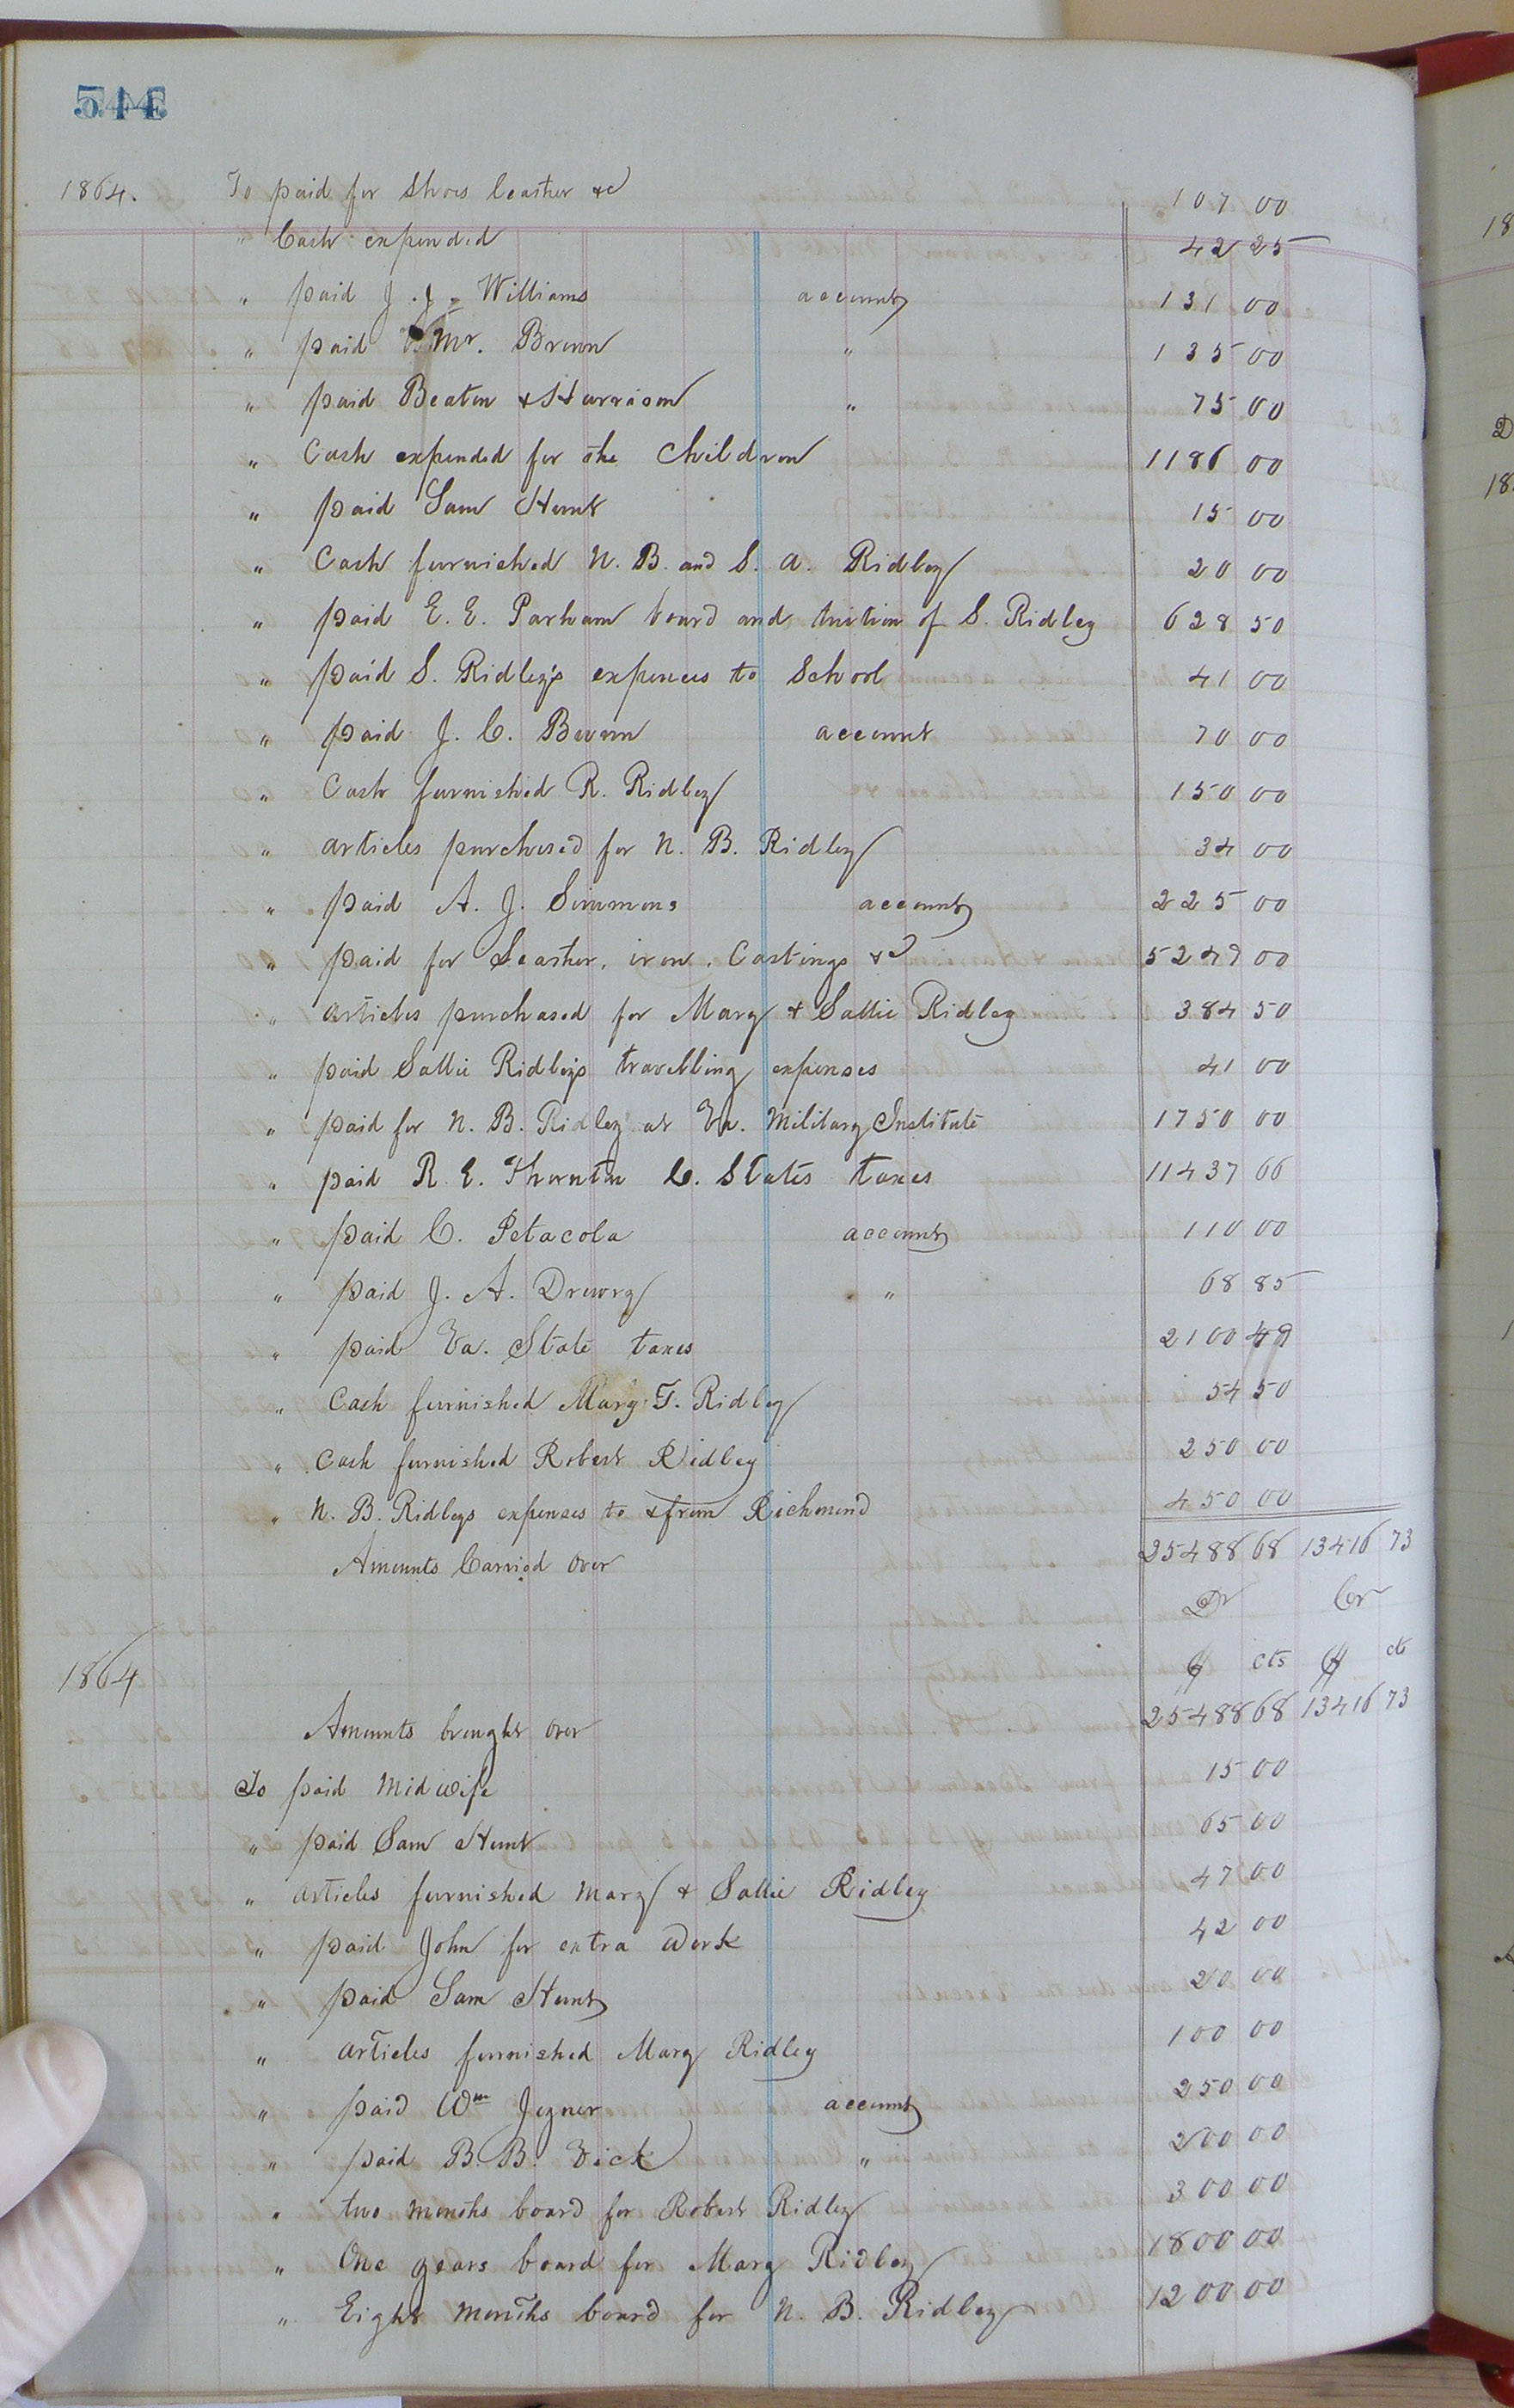 544
1864. To paid for Shoes leather &c 107 00
" Cash expended 42 25
" paid J. J. Williams account 131 00
" paid Mr. Brown " 135 00
" paid Beaton & Harrison " 75 00
" Cash expended for the Children 1186 00
" paid Sam Hunt 15 00
" Cash furnished N. B. and S. A. Ridley 20 00
" paid E. E. Parham board and tuition of S. Ridley 628 50
" paid S. Ridley's expences to School 41 00
" paid J. C. account 70 00
" Cash furnished R. Ridley 150 00
" articles purchased for N. B. Ridley 34 00
" paid A. J. Simmons account 225 00
" paid for Leather, iron, Castings &c 00
" articles purchased for Mary & Sallie Ridley 384 50
" paid Sallie Ridley's travelling expenses 41 00
" paid for N. B. Ridley at Va. Military Institute 1750 00
" paid R. E. Thornton C. States taxes 11437 66
" paid C. Petacola account 110 00
" paid J. A. Drewry " 68 85
" paid Va. State taxes 2100
" Cash furnished Mary F. Ridley 54 50
" Cash furnished Robert Ridley 250 00
" N. B. Ridleys expences to & from Richmond 450 00
Amounts Carried over 25488 68 13416 73
Dr Cr
$ cts $ cts
1864
Amounts brought over 25488 68 13416 73
To paid Midwife 15 00
" paid Sam Hunt 65 00
" articles furnished Mary & Sallie Ridley 47 00
" paid John for extra Work 42 00
" paid Sam Hunt 20 00
" articles furnished Mary Ridley 100 00
" paid Wm Joyner account 250 00
" paid B. B. Vick " 200 00
" two months board for Robert Ridley 300 00
" One years board for Mary Ridley 1800 00
" Eight months board for N. B. Ridley 1200 00